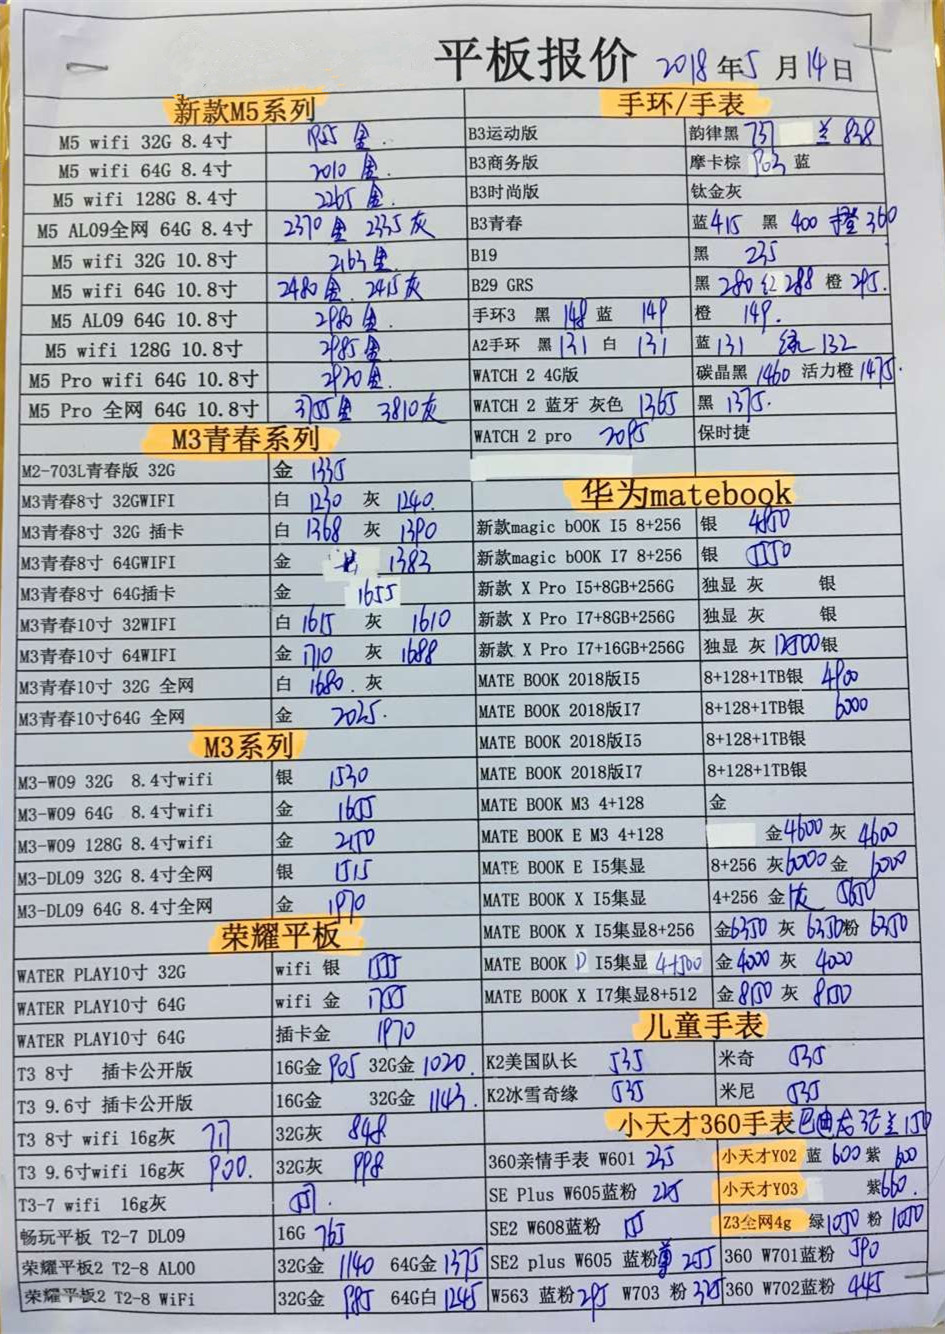 平板报价 2018年5月14日
新款M5系列
M5 wifi 32G 8.4寸 1955 金
M5 wifi 64G 8.4寸 2010 金
M5 wifi 128G 8.4寸 2265 金
M5 AL09全网 64G 8.4寸 2370 金 2335 灰
M5 wifi 32G 10.8寸 2163 金
M5 wifi 64G 10.8寸 2480 金 2415 灰
M5 AL09 64G 10.8寸 2980 金
M5 wifi 128G 10.8寸 2985 金
M5 Pro wifi 64G 10.8寸 2920 金
M5 Pro 全网 64G 10.8寸 3755 金 3810 灰
M3青春系列
M2-703L青春版 32G 金 1335
M3青春8寸 32GWIFI 白 1230 灰 1240
M3青春8寸 32G 插卡 白 1368 灰 1390
M3青春8寸 64GWIFI 金 1383
M3青春8寸 64G插卡 金 1655
M3青春10寸 32WIFI 白 1615 灰 1610
M3青春10寸 64WIFI 金 1710 灰 1688
M3青春10寸 32G 全网 白 1680 灰
M3青春10寸64G 全网 金 2025
M3系列
M3-W09 32G 8.4寸wifi 银 1530
M3-W09 64G 8.4寸wifi 金 1655
M3-W09 128G 8.4寸wifi 金 2150
M3-DL09 32G 8.4寸全网 银 1515
M3-DL09 64G 8.4寸全网 金 1970
荣耀平板
WATER PLAY10寸 32G wifi 银 1555
WATER PLAY10寸 64G wifi 金 1755
WATER PLAY10寸 64G 插卡金 1970
T3 8寸 插卡公开版 16G金 905 32G金 1020
T3 9.6寸 插卡公开版 16G金 32G金 1143
T3 8寸 wifi 16g灰 717 32G灰 848
T3 9.6寸wifi 16g灰 900 32G灰 998
T3-7 wifi 16g灰
畅玩平板 T2-7 DL09 16G 765
荣耀平板2 T2-8 AL00 32G金 1140 64G金 1375
荣耀平板2 T2-8 WiFi 32G金 985 64G白 1245
手环/手表
B3运动版 韵律黑 737 兰 838
B3商务版 摩卡棕 903 蓝
B3时尚版 钛金灰
B3青春 蓝 415 黑 400 橙 360
B19 黑 235
B29 GRS 黑 280 红 288 橙 295
手环3 黑 148 蓝 149 橙 149
A2手环 黑 131 白 131 蓝 131 绿 132
WATCH 2 4G版 碳晶黑 1460 活力橙 1475
WATCH 2 蓝牙 灰色 1365 黑 1375
WATCH 2 pro 2095 保时捷
华为matebook
新款magic bOOK I5 8+256 银 4850
新款magic bOOK I7 8+256 银 5550
新款 X Pro I5+8GB+256G 独显 灰 银
新款 X Pro I7+8GB+256G 独显 灰 银
新款 X Pro I7+16GB+256G 独显 灰 12500 银
MATE BOOK 2018版I5 8+128+1TB银 4900
MATE BOOK 2018版I7 8+128+1TB银 6000
MATE BOOK 2018版I5 8+128+1TB银
MATE BOOK 2018版I7 8+128+1TB银
MATE BOOK M3 4+128 金
MATE BOOK E M3 4+128 金 4600 灰 4600
MATE BOOK E I5集显 8+256 灰 6000 金 6000
MATE BOOK X I5集显 4+256 金 灰 5650
MATE BOOK X I5集显8+256 金 6350 灰 6350 粉 6350
MATE BOOK D I5集显 4+500 金 4000 灰 4000
MATE BOOK X I7集显8+512 金 8150 灰 8150
儿童手表
K2美国队长 535 米奇 535
K2冰雪奇缘 535 米尼 535
小天才360手表
360亲情手表 W601 235 小天才Y02 蓝 600 紫 600
SE Plus W605蓝粉 225 小天才Y03 紫 660
SE2 W608蓝粉 Z3全网4g 绿 1050 粉 1050
SE2 plus W605 蓝粉 255 360 W701蓝粉 390
W563 蓝粉 295 W703 粉 325 360 W702蓝粉 445